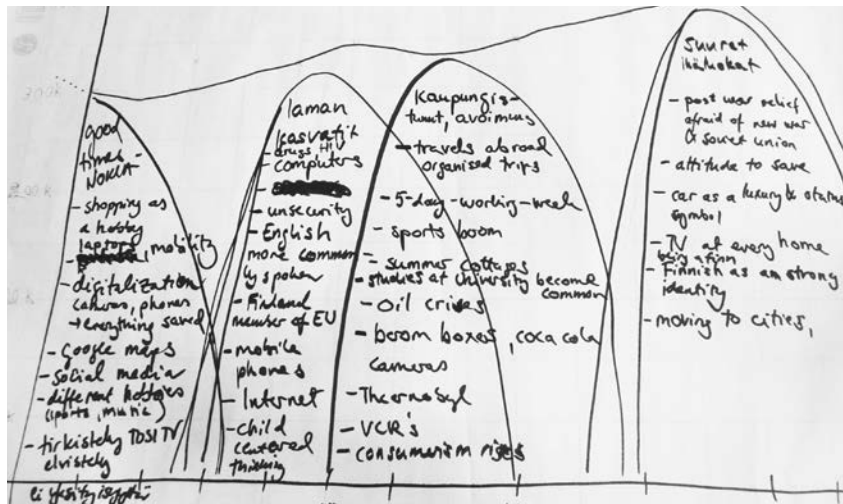 good
times
NOKIA
- shopping as
a hobby
laptops
, mobility
- digitalization
cameras, phones
→ everything saved
- google maps
- social media
- different hobbies
(sports, music)
- tirkistely TOSI TV
elvistely
laman
kasvatit
drugs HI
- computers
- unsecurity
- English
more common
ly spoken
- Finland
member of EU
- mobile
phones
- Internet
- child
centered
thinking
Kaupungis-
tunut, avoimuus
- travels abroad
organised trips
- 5-day-working-week
- sports boom
- summer cottages
- studies at University become
common
- oil crises
- boom boxes, coca cola
cameras
- Thernobyl
- VCR's
- consumarism rises
suuret
ikäluokat
- post war relief
afraid of new war
& soviet union
- attitude to save
- car as a luxury & status
symbol
- TV at every home
being a finn
- Finnish as am strong
identity
- moving to cities,